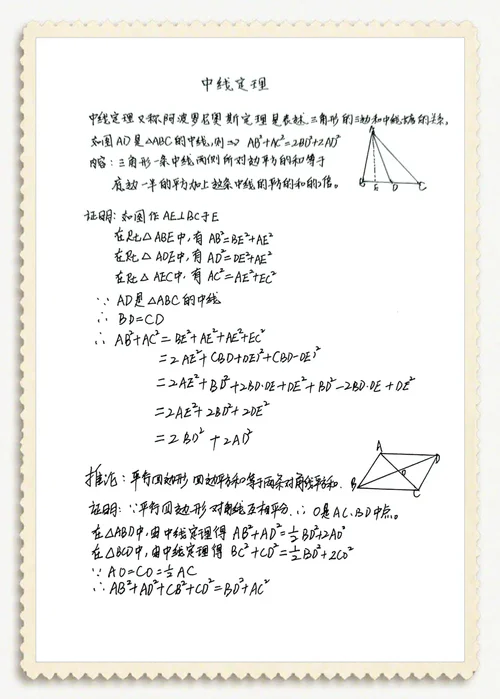 中线定理
中线定理又称阿波罗尼奥斯定理是表述三角形的三边和中线长度的关系,
如图AD是△ABC的中线,则⇒ AB²+AC²=2BD²+2AD²
内容:三角形一条中线两侧所对边平方的和等于
底边一半的平方加上这条中线的平方的和的2倍。
A
B E D C
证明:如图作AE⊥BC于E
在Rt△ABE中,有AB²=BE²+AE²
在Rt△ADE中,有AD²=DE²+AE²
在Rt△AEC中,有AC²=AE²+EC²
∵ AD是△ABC的中线
∴ BD=CD
∴ AB²+AC²=BE²+AE²+AE²+EC²
=2AE²+(BD+DE)²+(BD-DE)²
=2AE²+BD²+2BD·DE+DE²+BD²-2BD·DE+DE²
=2AE²+2BD²+2DE²
=2BD²+2AD²
A D
O
B C
推论:平行四边形四边平方和等于两条对角线平方和.
证明:∵平行四边形对角线互相平分.∴O是AC.BD中点。
在△ABD中,由中线定理得 AB²+AD²=½BD²+2AO²
在△BCD中,由中线定理得 BC²+CD²=½BD²+2CO²
∵ AO=CO=½AC
∴ AB²+AD²+CB²+CD²=BD²+AC²